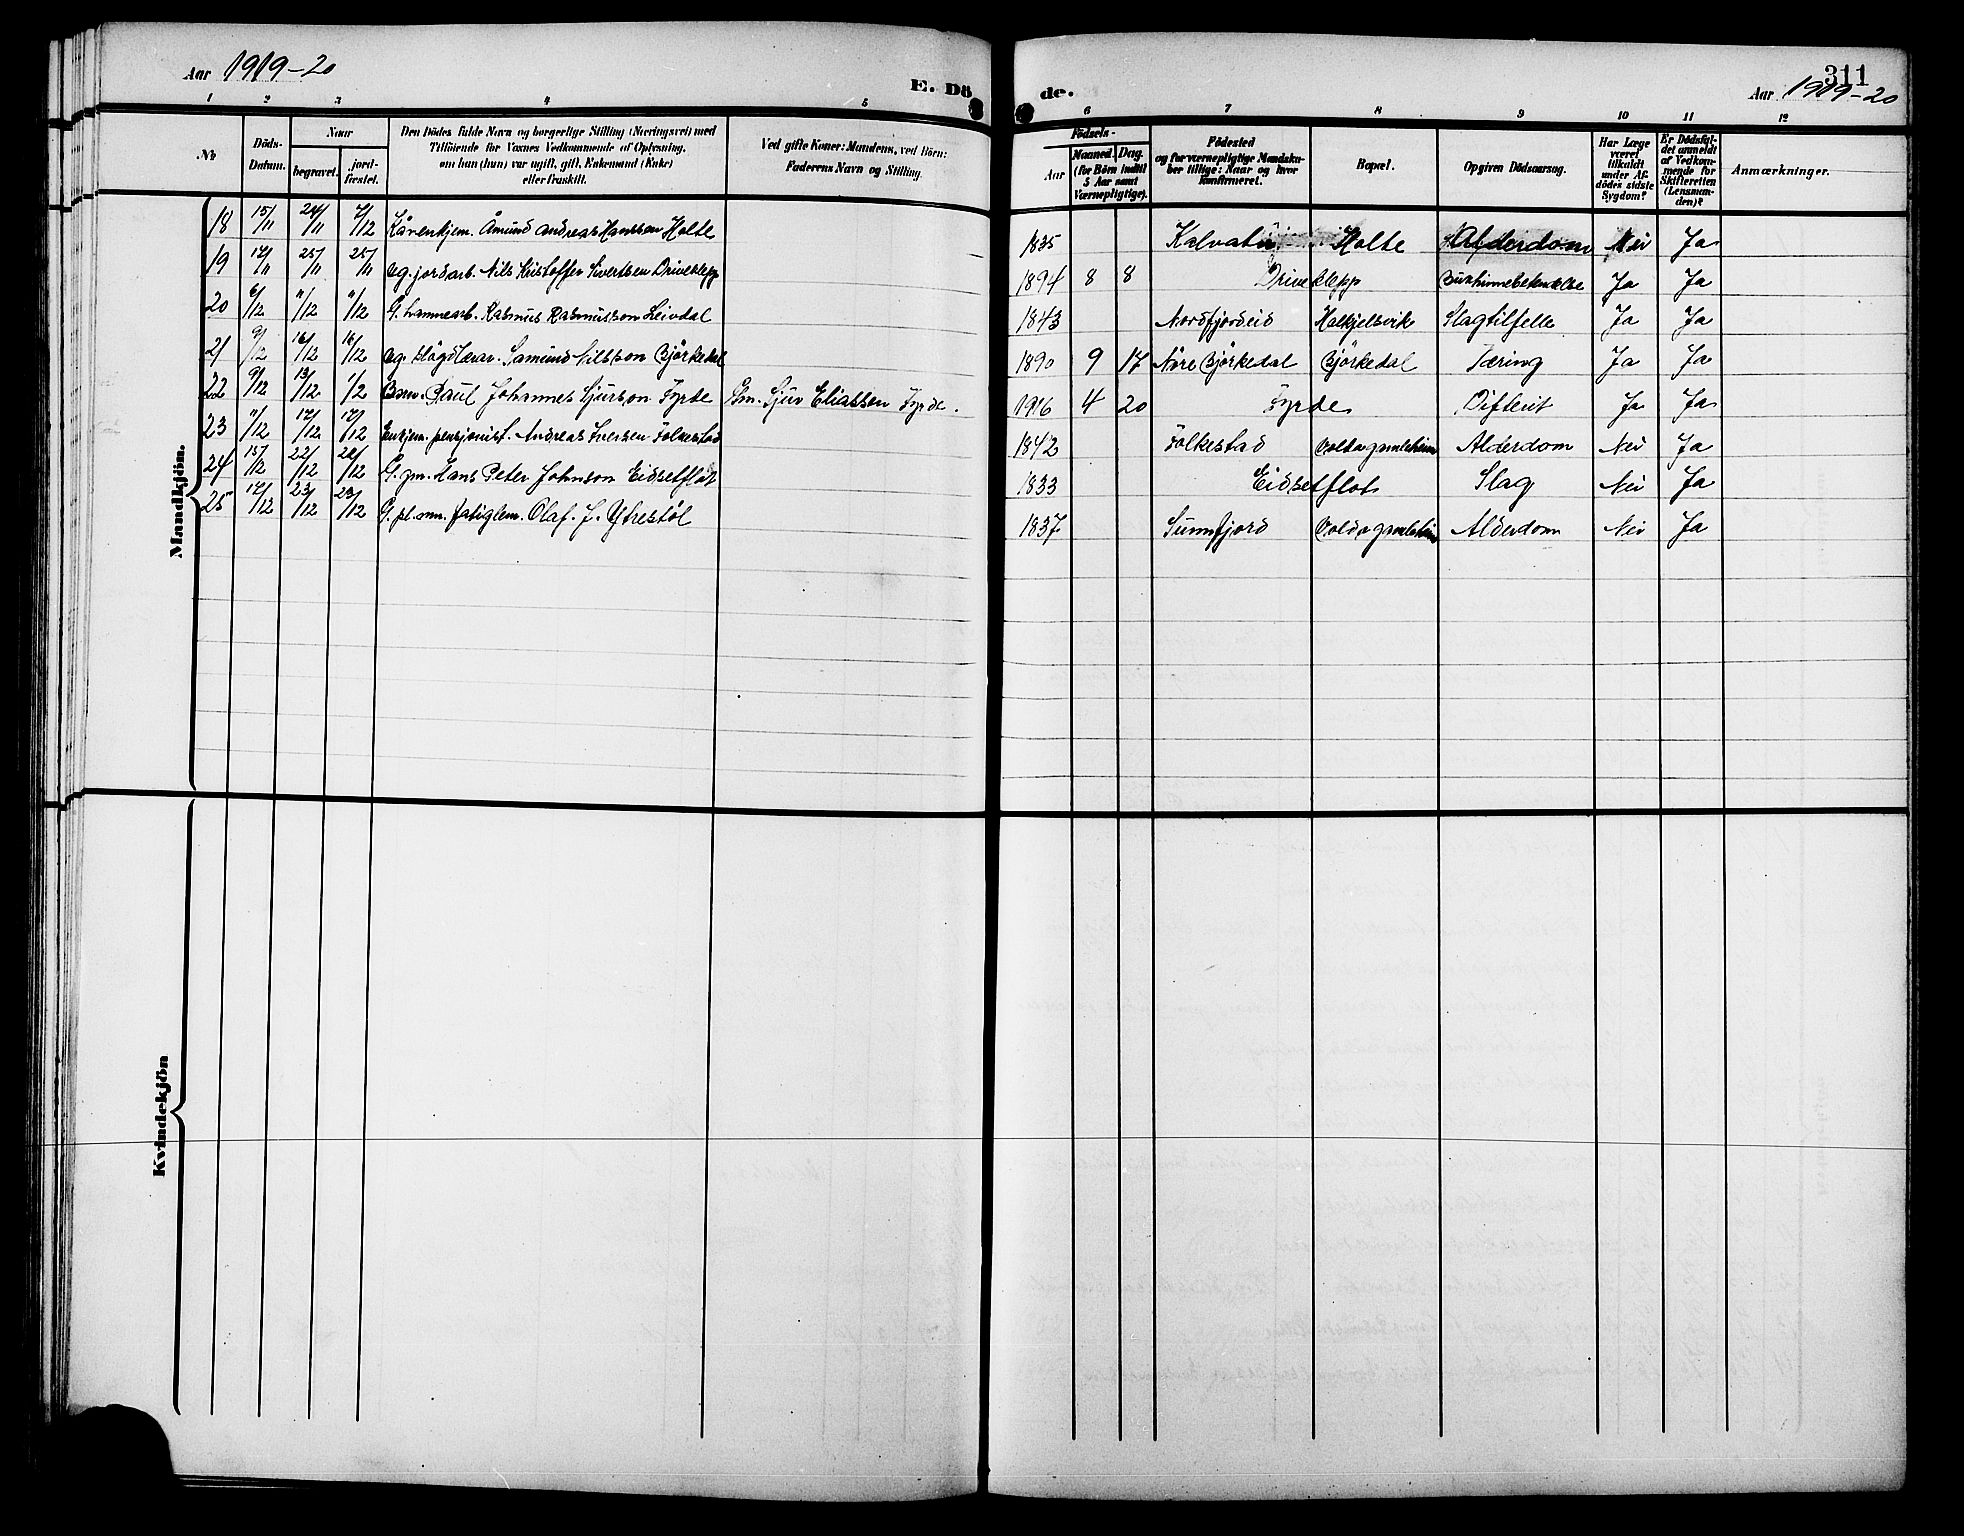 Aar 1919-20
E. Dö
de.
311
Aar 1919-20
1 2 3 4 5 6 7 8 9 10 11 12
No
Döds-Datum.
Naar
begravet.
jord-fæstet.
Den Dödes fulde Navn og borgerlige Stilling (Næringsvei) med
Tilföiende for Voxnes Vedkommende af Oplysning,
om han (hun) var ugift, gift, Enkemand (Enke)
eller fraskilt.
Ved gifte Koner: Mandens, ved Börn:
Faderens Navn og Stilling.
Födsels-
Aar
Maaned. Dag.
(for Börn indtil
5 Aar samt
Værnepligtige).
Födested
og for værnepligtige Mandska-
ber tillige: Naar og hvor
konfirmeret.
Bopæl.
Opgiven Dödsaarsag.
Har Læge
været
tilkaldt
under Af-
dödes sidste
Sygdom?
Er Dödsfal-
det anmeldt
af Vedkom-
mende for
Skifteretten
(Lensman-
den)?
Anmærkninger.
Mandkjön.
18 15/11 24/11 7/12 Kårenkjem. Åmund Andreas Hanssen Holte 1835 Kalvatn Holte Alderdom Nei Ja
19 17/11 25/11 25/11 ug. jordarb. Nils Kristoffer Sivertsen Driveklepp 1894 8 8 Driveklepp Bukhinnebetendelse Ja Ja
20 6/12 11/12 11/12 G. Rasmus Rasmusson Leivdal 1843 Nordfjordeid Halkjelsvik Slagtilfelle Ja Ja
21 9/12 16/12 16/12 ug. slögdlærar. Samund Nilsson Björkedal 1890 9 17 Nöre Björkedal Björkedal Tæring Ja Ja
22 9/12 13/12 1/2 Barn. Paul Johannes Sjurson Fyrde Gm. Sjur Eliassen Fyrde. 1916 4 20 Fyrde Difterit Ja Ja
23 11/12 17/12 17/12 Enkjem. pensjonist. Andreas Iversen Folkestad 1842 Folkestad Volda gamleheim Alderdom Nei Ja
24 15/12 22/12 22/12 G. gm. Hans Peter Johnson Eidsetflot 1833 Eidsetflot Slag Nei Ja
25 17/12 23/12 23/12 G. pl. mn. fatiglem. Olaf. J. Ytrestöl 1837 Sunnfjord Volda gamleheim Alderdom Nei Ja
Kvindekjön